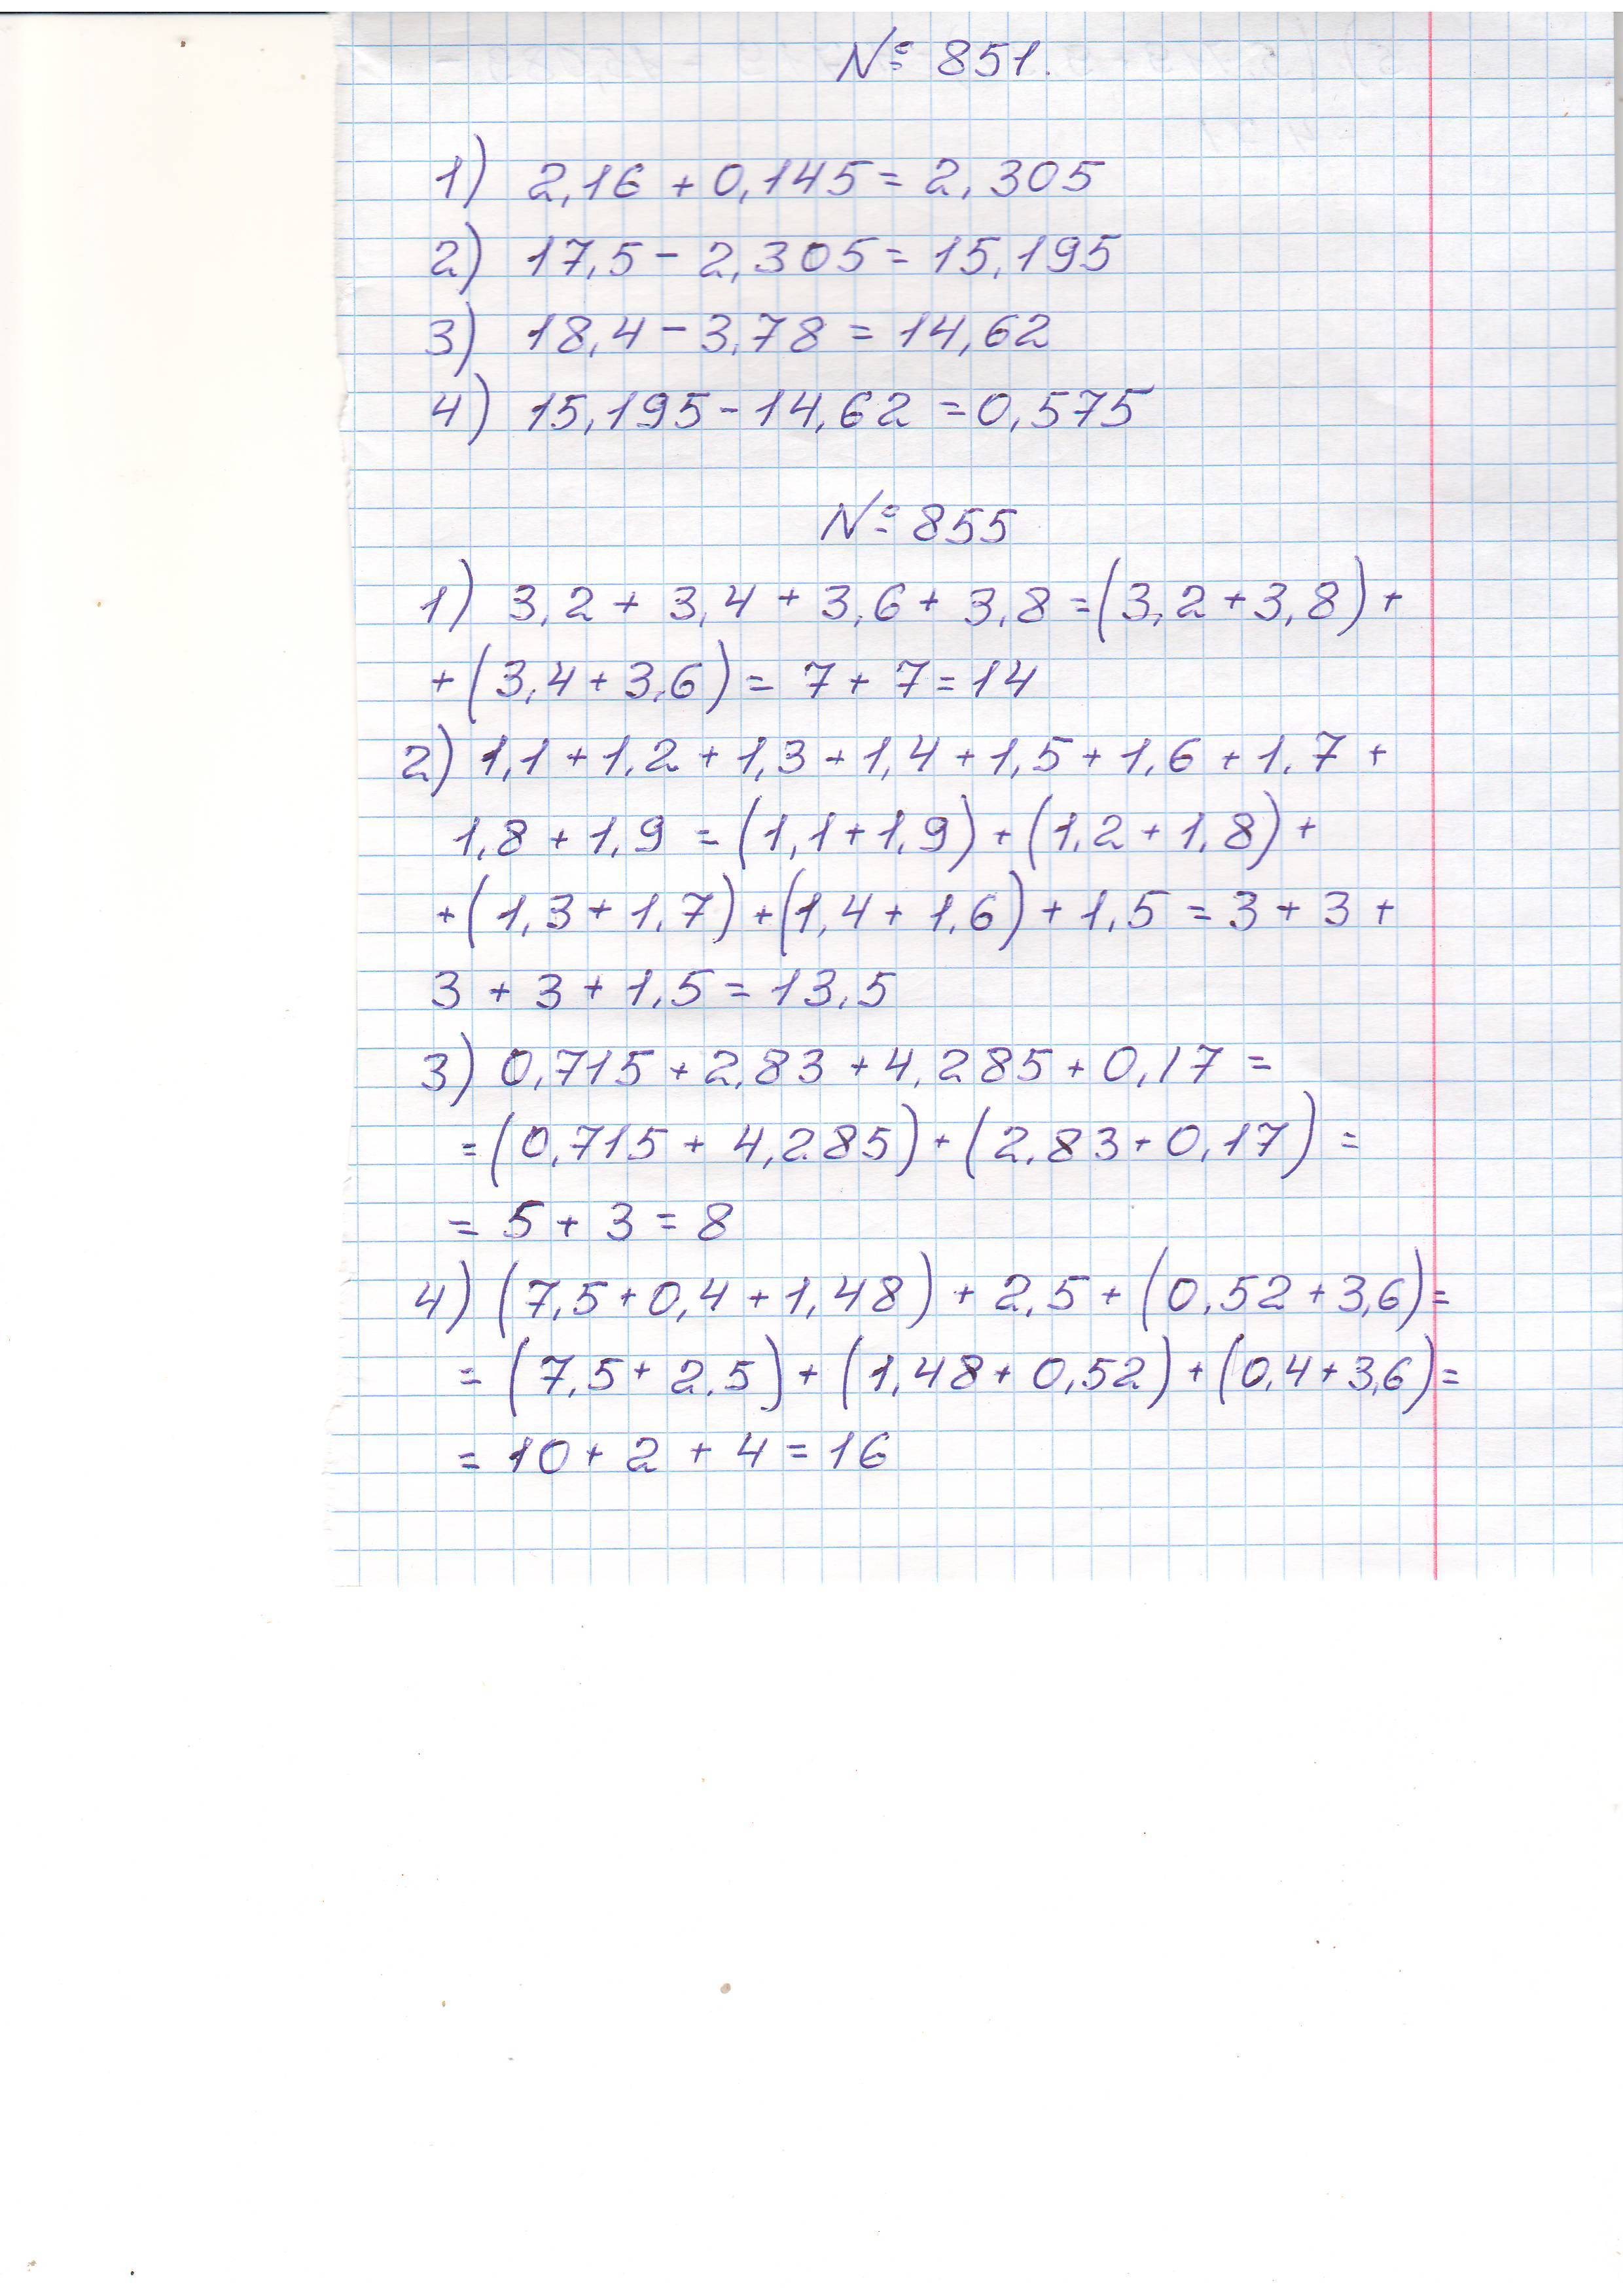 № 851.
1) 2,16 + 0,145 = 2,305
2) 17,5 - 2,305 = 15,195
3) 18,4 - 3,78 = 14,62
4) 15,195 - 14,62 = 0,575
№ 855
1) 3,2 + 3,4 + 3,6 + 3,8 = (3,2 + 3,8) +
+ (3,4 + 3,6) = 7 + 7 = 14
2) 1,1 + 1,2 + 1,3 + 1,4 + 1,5 + 1,6 + 1,7 +
1,8 + 1,9 = (1,1 + 1,9) + (1,2 + 1,8) +
+ (1,3 + 1,7) + (1,4 + 1,6) + 1,5 = 3 + 3 +
3 + 3 + 1,5 = 13,5
3) 0,715 + 2,83 + 4,285 + 0,17 =
= (0,715 + 4,285) + (2,83 + 0,17) =
= 5 + 3 = 8
4) (7,5 + 0,4 + 1,48) + 2,5 + (0,52 + 3,6) =
= (7,5 + 2,5) + (1,48 + 0,52) + (0,4 + 3,6) =
= 10 + 2 + 4 = 16